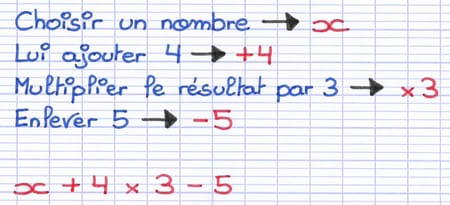 Choisir un nombre → x
Lui ajouter 4 → +4
Multiplier le résultat par 3 → × 3
Enlever 5 → -5
x + 4 × 3 - 5